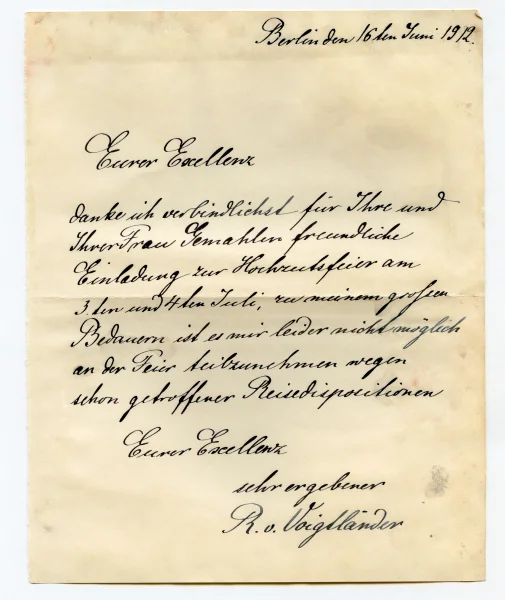 Berlin den 16ten Juni 1912.
Eurer Excellenz
danke ich verbindlichst für Ihre und
Ihrer Frau Gemahlen freundliche
Einladung zur Hochzeitsfeier am
3.ten und 4ten Juli, zu meinem grossen
Bedauern ist es mir leider nicht möglich
an der Feier teilzunehmen wegen
schon getroffener Reisedispositionen
Eurer Excellenz
sehr ergebener
R. v. Voigtländer